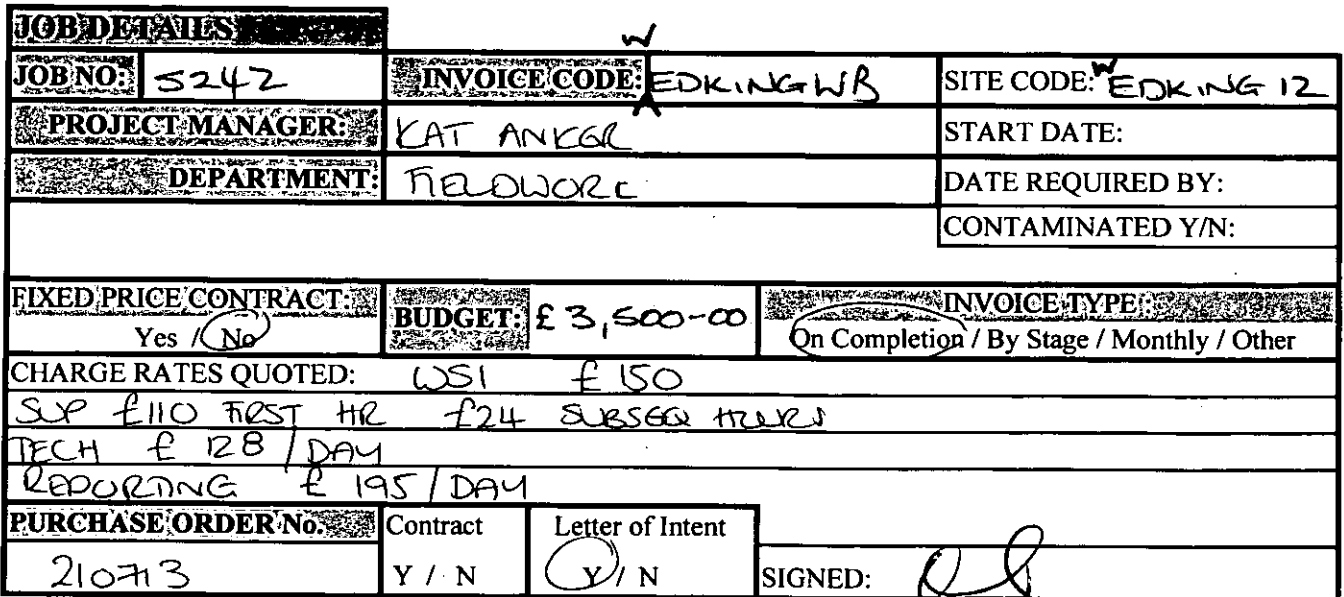 JOB DETAILS
JOB NO: 5242 INVOICE CODE: WEDKINGWB SITE CODE: WEDKING 12
PROJECT MANAGER: KAT ANKER START DATE:
DEPARTMENT: FIELDWORK DATE REQUIRED BY:
CONTAMINATED Y/N:
FIXED PRICE CONTRACT: BUDGET: £3,500-00 INVOICE TYPE:
Yes / No On Completion / By Stage / Monthly / Other
CHARGE RATES QUOTED: WSI £150
SUP £110 FIRST HR £24 SUBSEQ HOURS
TECH £128/DAY
REPORTING £195/DAY
PURCHASE ORDER No. Contract Letter of Intent
210713 Y / N Y / N SIGNED: